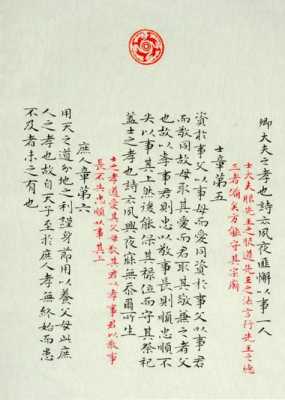 卿大夫之孝也詩云夙夜匪懈以事一人
士大夫服先王之服道先王之法言行先王之德
三者備矣方能守其宗廟
士章第五
資於事父以事母而愛同資於事父以事君
而敬同故母取其愛而君取其敬兼之者父
也故以孝事君則忠以敬事長則順忠順不
失以事其上然後能保其祿位而守其祭祀
蓋士之孝也詩云夙興夜寐無忝爾所生
士之孝道愛其父母敬其君以孝事君以敬事
長不失忠順以事其上
庶人章第六
用天之道分地之利謹身節用以養父母此庶
人之孝也故自天子至於庶人孝無終始而患
不及者未之有也